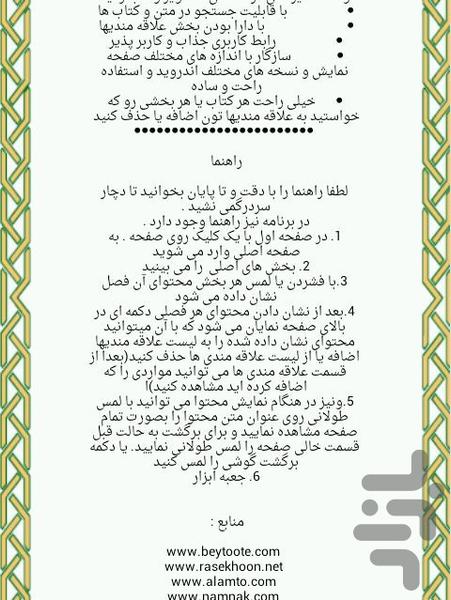 • با قابلیت جستجو در متن و کتاب ها
• با دارا بودن بخش علاقه مندیها
• رابط کاربری جذاب و کاربر پذیر
• سازگار با اندازه های مختلف صفحه
نمایش و نسخه های مختلف اندروید و استفاده
راحت و ساده
• خیلی راحت هر کتاب یا هر بخشی رو که
خواستید به علاقه مندیها تون اضافه یا حذف کنید
••••••••••••••••••••••••
راهنما
لطفا راهنما را با دقت و تا پایان بخوانید تا دچار
سردرگمی نشید .
در برنامه نیز راهنما وجود دارد .
1. در صفحه اول با یک کلیک روی صفحه . به
صفحه اصلی وارد می شوید
2. بخش های اصلی را می بینید
3.با فشردن یا لمس هر بخش محتوای آن فصل
نشان داده می شود
4.بعد از نشان دادن محتوای هر فصلی دکمه ای در
بالای صفحه نمایان می شود که با آن میتوانید
محتوای نشان داده شده را به لیست علاقه مندیها
اضافه یا از لیست علاقه مندی ها حذف کنید(بعدا از
قسمت علاقه مندی ها می توانید مواردی را که
اضافه کرده اید مشاهده کنید)ا
5.ونیز در هنگام نمایش محتوا می توانید با لمس
طولانی روی عنوان متن محتوا را بصورت تمام
صفحه مشاهده نمایید و برای برگشت به حالت قبل
قسمت خالی صفحه را لمس طولانی نمایید. یا دکمه
برگشت گوشی را لمس کنید
6. جعبه ابزار
منابع :
www.beytoote.com
www.rasekhoon.net
www.alamto.com
www.namnak.com
بازار